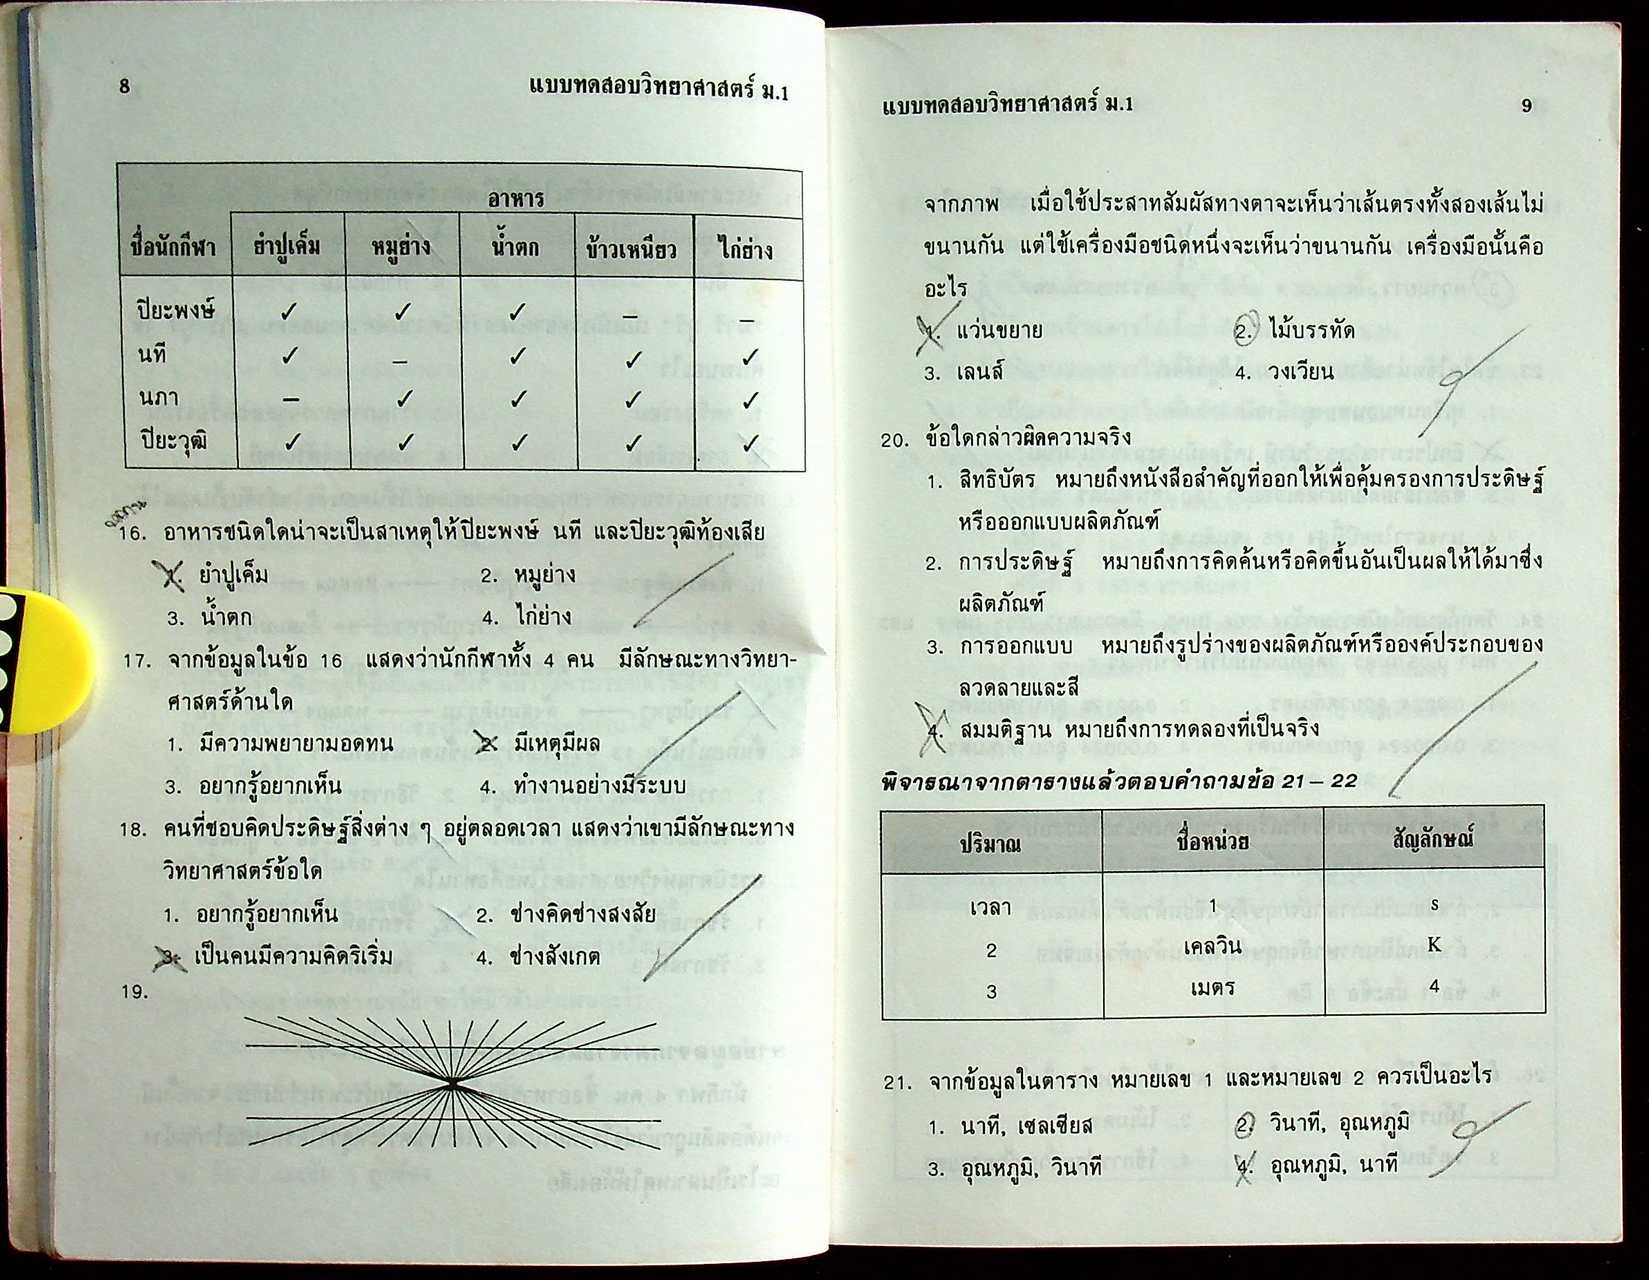 8
แบบทดสอบวิทยาศาสตร์ ม.1
อาหาร
ชื่อนักกีฬา ยำปูเค็ม หมูย่าง น้ำตก ข้าวเหนียว ไก่ย่าง
ปิยะพงษ์ ✓ ✓ ✓ – –
นที ✓ – ✓ ✓ ✓
นภา – ✓ ✓ ✓ ✓
ปิยะวุฒิ ✓ ✓ ✓ ✓ ✓
16. อาหารชนิดใดน่าจะเป็นสาเหตุให้ปิยะพงษ์ นที และปิยะวุฒิท้องเสีย
1. ยำปูเค็ม 2. หมูย่าง
3. น้ำตก 4. ไก่ย่าง
17. จากข้อมูลในข้อ 16 แสดงว่านักกีฬาทั้ง 4 คน มีลักษณะทางวิทยา-
ศาสตร์ด้านใด
1. มีความพยายามอดทน 2. มีเหตุมีผล
3. อยากรู้อยากเห็น 4. ทำงานอย่างมีระบบ
18. คนที่ชอบคิดประดิษฐ์สิ่งต่าง ๆ อยู่ตลอดเวลา แสดงว่าเขามีลักษณะทาง
วิทยาศาสตร์ข้อใด
1. อยากรู้อยากเห็น 2. ช่างคิดช่างสงสัย
3. เป็นคนมีความคิดริเริ่ม 4. ช่างสังเกต
19.
แบบทดสอบวิทยาศาสตร์ ม.1
9
จากภาพ เมื่อใช้ประสาทสัมผัสทางตาจะเห็นว่าเส้นตรงทั้งสองเส้นไม่
ขนานกัน แต่ใช้เครื่องมือชนิดหนึ่งจะเห็นว่าขนานกัน เครื่องมือนั้นคือ
อะไร
1. แว่นขยาย 2. ไม้บรรทัด
3. เลนส์ 4. วงเวียน
20. ข้อใดกล่าวผิดความจริง
1. สิทธิบัตร หมายถึงหนังสือสำคัญที่ออกให้เพื่อคุ้มครองการประดิษฐ์
หรือออกแบบผลิตภัณฑ์
2. การประดิษฐ์ หมายถึงการคิดค้นหรือคิดขึ้นอันเป็นผลให้ได้มาซึ่ง
ผลิตภัณฑ์
3. การออกแบบ หมายถึงรูปร่างของผลิตภัณฑ์หรือองค์ประกอบของ
ลวดลายและสี
4. สมมติฐาน หมายถึงการทดลองที่เป็นจริง
พิจารณาจากตารางแล้วตอบคำถามข้อ 21 – 22
ปริมาณ ชื่อหน่วย สัญลักษณ์
เวลา 1 s
2 เคลวิน K
3 เมตร 4
21. จากข้อมูลในตาราง หมายเลข 1 และหมายเลข 2 ควรเป็นอะไร
1. นาที, เซลเซียส 2. วินาที, อุณหภูมิ
3. อุณหภูมิ, วินาที 4. อุณหภูมิ, นาที